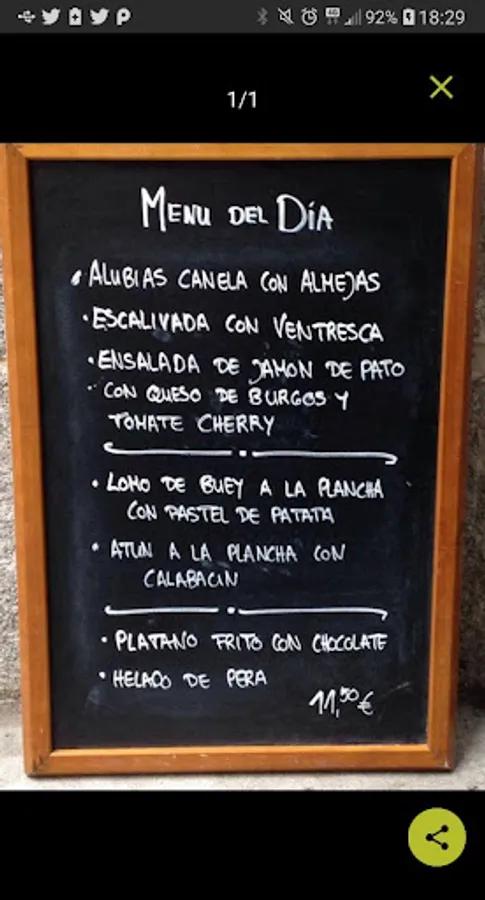 92% 18:29
1/1
MENU DEL DÍA
• ALUBIAS CANELA CON ALMEJAS
• ESCALIVADA CON VENTRESCA
• ENSALADA DE JAMON DE PATO
CON QUESO DE BURGOS Y
TOMATE CHERRY
• LOMO DE BUEY A LA PLANCHA
CON PASTEL DE PATATA
• ATUN A LA PLANCHA CON
CALABACIN
• PLATANO FRITO CON CHOCOLATE
• HELADO DE PERA
11,50€